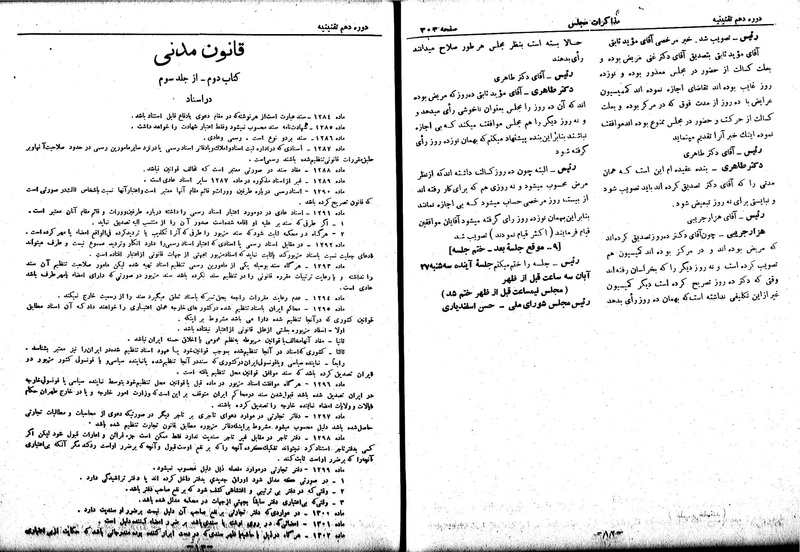 دوره دهم تقنینیه
مذاکرات مجلس
صفحه ۳۰۳
رئیس ـ تصویب شد. خبر مرخصی آقای مؤید ثابتی
آقای مؤید ثابتی بتصدیق آقای دکتر غنی مریض بوده و
بعلت کسالت از حضور در مجلس معذور بوده و نوزده
روز غایب بوده اند تقاضای اجازه نموده اند کمیسیون
عرایض با ده روز از مدت فوق که در مرکز بوده و بعلت
کسالت از حرکت و حضور در مجلس ممنوع بوده اند موافقت
نموده اینک خبر آنرا تقدیم مینماید
رئیس ـ آقای دکتر طاهری
دکتر طاهری ـ بنده عقیده ام این است که همان
مدتی را که آقای دکتر تصدیق کرده اند باید تصویب شود
و نبایستی برای نه روز تبعیض شود.
رئیس ـ آقای هزارجریبی
هزارجریبی ـ چون آقای دکتر ده روز تصدیق کرده اند
که مریض بوده اند و در مرکز بوده اند کمیسیون هم
تصویب کرده است و نه روز دیگر را که بخراسان رفته اند
وقتی که دکتر ده روز تصریح کرده است دیگر کمیسیون
خبر از این تکلیفی نداشته است که بهمان ده روز رأی بدهد
حالا بسته است بنظر مجلس هر طور صلاح میدانند
رأی بدهند
رئیس ـ آقای دکتر طاهری
دکتر طاهری ـ آقای مؤید ثابتی ده روز که مریض بوده
اند که آن ده روز را مجلس بعنوان ناخوشی رأی میدهد و
و نه روز دیگر را هم مجلس موافقت میکند که بی اجازه
نباشند بنابر این بنده پیشنهاد میکنم که بهمان نوزده روز رأی
گرفته شود
رئیس ـ البته چون ده روز کسالت داشته اند که از نظر
مرض محسوب میشود و نه روزی هم که برای کار رفته اند
از بیست روز مرخصی حساب میشود که بی اجازه نمانند
بنابر این بهمان نوزده روز رأی گرفته میشود آقایان موافقین
قیام فرمایند ( اکثر قیام نمودند ) تصویب شد
[۹ ـ موقع جلسه بعد ـ ختم جلسه]
رئیس ـ جلسه را ختم میکنم جلسهٔ آینده سه شنبه ۲۷
آبان سه ساعت قبل از ظهر
( مجلس نیمساعت قبل از ظهر ختم شد )
رئیس مجلس شورای ملی ـ حسن اسفندیاری
دوره دهم تقنینیه
قانون مدنی
کتاب دوم ـ از جلد سوم
در اسناد
ماده ۱۲۸۴ ـ سند عبارت است از هر نوشته که در مقام دعوی یا دفاع قابل استناد باشد.
ماده ۱۲۸۵ ـ شهادتنامه سند محسوب نمیشود و فقط اعتبار شهادت را خواهد داشت.
ماده ۱۲۸۶ ـ سند بر دو نوع است ـ رسمی و عادی.
ماده ۱۲۸۷ ـ اسنادی که در اداره ثبت اسناد و املاک و یا دفاتر اسناد رسمی یا در نزد سایر مامورین رسمی در حدود صلاحیت آنها و بر
طبق مقررات قانونی تنظیم شده باشند رسمی است.
ماده ۱۲۸۸ ـ مفاد سند در صورتی معتبر است که مخالف قوانین نباشد.
ماده ۱۲۸۹ ـ غیر از اسناد مذکوره در ماده ۱۲۸۷ سایر اسناد عادی است.
ماده ۱۲۹۰ ـ اسناد رسمی درباره طرفین و وراث و قائم مقام آنها معتبر است و اعتبار آنها نسبت باشخاص ثالث در صورتی است
که قانون تصریح کرده باشد.
ماده ۱۲۹۱ ـ اسناد عادی در دو مورد اعتبار اسناد رسمی را داشته درباره طرفین و وراث و قائم مقام آنان معتبر است.
۱ ـ اگر طرفی که سند بر علیه او اقامه شده است صدور آن را از منتسب الیه تصدیق نماید.
۲ ـ هر گاه در محکمه ثابت شود که سند مزبور را طرفی که آنرا تکذیب یا تردید کرده فی الواقع امضاء یا مهر کرده است.
ماده ۱۲۹۲ ـ در مقابل اسناد رسمی یا اسنادی که اعتبار اسناد رسمی را دارد انکار و تردید مسموع نیست و طرف میتواند
ادعای جعلیت نسبت باسناد مزبور کند یا ثابت نماید که اسناد مزبور بجهتی از جهات قانونی از اعتبار افتاده است.
ماده ۱۲۹۳ ـ هر گاه سند بوسیله یکی از مامورین رسمی تنظیم اسناد تهیه شده لیکن مامور صلاحیت تنظیم آن سند
را نداشته و یا رعایت ترتیبات مقرره قانونی را در تنظیم سند نکرده باشد سند مزبور در صورتی که دارای امضاء یا مهر طرف باشد
عادی است.
ماده ۱۲۹۴ ـ عدم رعایت مقررات راجعه بحق تمبر که باسناد تعلق میگیرد سند را از رسمیت خارج نمیکند.
ماده ۱۲۹۵ ـ محاکم ایران باسناد تنظیم شده در کشورهای خارجه همان اعتباری را خواهند داد که آن اسناد مطابق
قوانین کشوری که در آنجا تنظیم شده دارا می باشد مشروط بر اینکه.
اولا ـ اسناد مزبوره بعلتی از علل قانونی از اعتبار نیفتاده باشد.
ثانیا ـ مفاد آنها مخالف با قوانین مربوطه بنظم عمومی یا اخلاق حسنه ایران نباشد.
ثالثا ـ کشوری که اسناد در آنجا تنظیم شده بموجب قوانین خود یا عهود اسناد تنظیم شده در ایران را نیز معتبر بشناسد.
رابعا ـ نماینده سیاسی و یا قونسولی ایران در کشوری که سند در آنجا تنظیم شده یا نماینده سیاسی و یا قونسولی کشور مزبور در
ایران تصدیق کرده باشد که سند موافق قوانین محل تنظیم یافته است.
ماده ۱۲۹۶ ـ هر گاه موافقت اسناد مزبور در ماده قبل با قوانین محل تنظیم خود بتوسط نماینده سیاسی یا قونسولی خارجه
در ایران تصدیق شده باشد قبول شدن سند در محاکم ایران متوقف بر این است که وزارت امور خارجه و یا در خارج طهران حکام
ایالات و ولایات امضاء نماینده خارجه را تصدیق کرده باشند.
ماده ۱۲۹۷ ـ دفاتر تجارتی در موارد دعوای تاجری بر تاجر دیگر در صورتیکه دعوی از محاسبات و مطالبات تجارتی
حاصل شده باشد دلیل محسوب میشود مشروط بر اینکه دفاتر مزبوره مطابق قانون تجارت تنظیم شده باشد.
ماده ۱۲۹۸ ـ دفتر تاجر در مقابل غیر تاجر سندیت ندارد فقط ممکن است جزء قرائن و امارات قبول شود لیکن اگر
کسی بدفتر تاجر استناد کرد نمیتواند تفکیک کرده آنچه را که بر نفع اوست قبول و آنچه که بر ضرر اوست رد کند مگر آنکه بی اعتباری
آنچه را که بر ضرر اوست ثابت کند.
ماده ۱۲۹۹ ـ دفتر تجارتی در موارد مفصله ذیل دلیل محسوب نمیشود.
۱ ـ در صورتی که مدلل شود اوراق جدیدی بدفتر داخل کرده اند یا دفتر تراشیدگی دارد.
۲ ـ وقتی که در دفتر بی ترتیبی و اغتشاشی کشف شود که بر نفع صاحب دفتر باشد.
۳ ـ وقتی که بی اعتباری دفتر سابقاً بجهتی از جهات در محکمه مدلل شده باشد.
ماده ۱۳۰۰ ـ در مواردی که دفتر تجارتی بر نفع صاحب آن دلیل نیست بر ضرر او سندیت دارد.
ماده ۱۳۰۱ ـ امضائی که در روی نوشته یا سندی باشد بر ضرر امضاء کننده دلیل است.
ماده ۱۳۰۲ ـ هر گاه در ذیل یا حاشیه یا ظهر سندی که در دست ابراز کننده بوده مندرجاتی باشد که حکایت از بی اعتباری